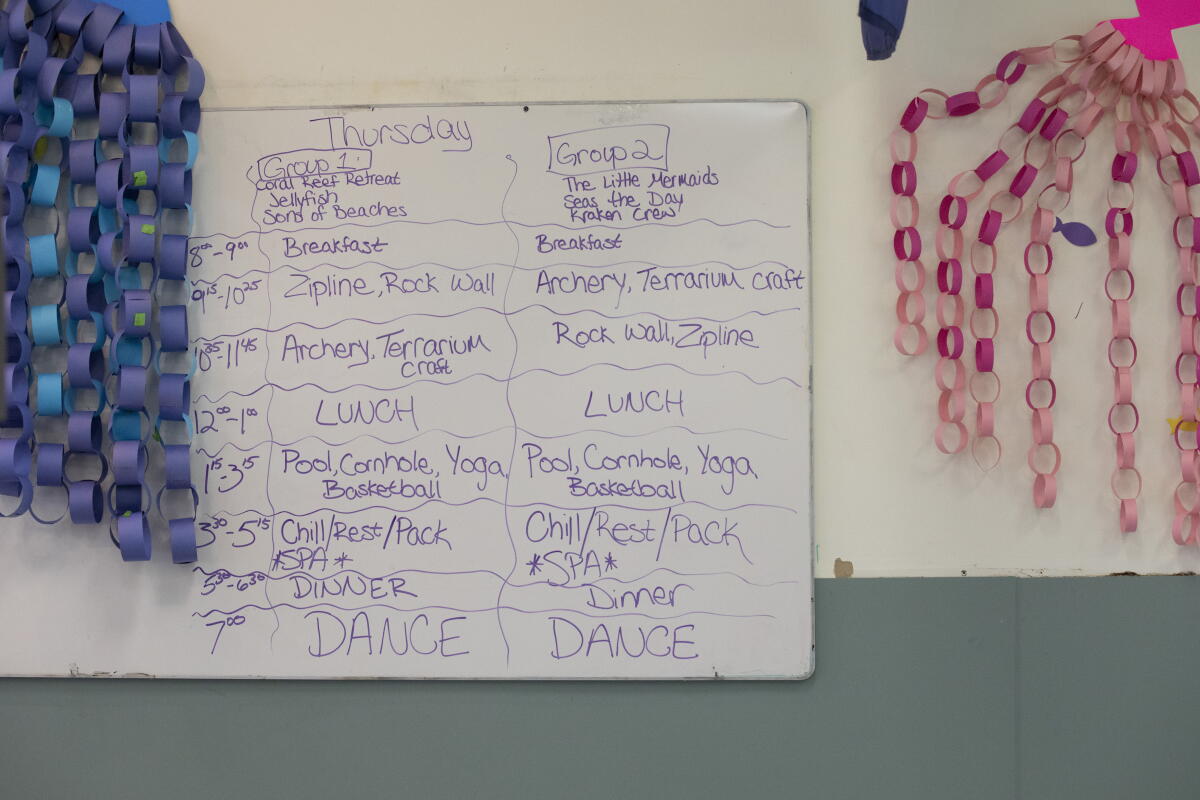 Thursday
Group 1
Coral Reef Retreat
Jellyfish
Sons of Beaches
Group 2
The Little Mermaids
Seas the Day
Kraken Crew
8⁰⁰-9⁰⁰ Breakfast Breakfast
9¹⁵-10²⁵ Zipline, Rock Wall Archery, Terrarium craft
10³⁵-11⁴⁵ Archery, Terrarium Rock Wall, Zipline
craft
12⁰⁰-1⁰⁰ LUNCH LUNCH
1¹⁵-3¹⁵ Pool, Cornhole, Yoga, Pool, Cornhole, Yoga
Basketball Basketball
3³⁰-5¹⁵ Chill/Rest/Pack Chill/Rest/Pack
*SPA* *SPA*
5³⁰-6³⁰ DINNER Dinner
7⁰⁰ DANCE DANCE